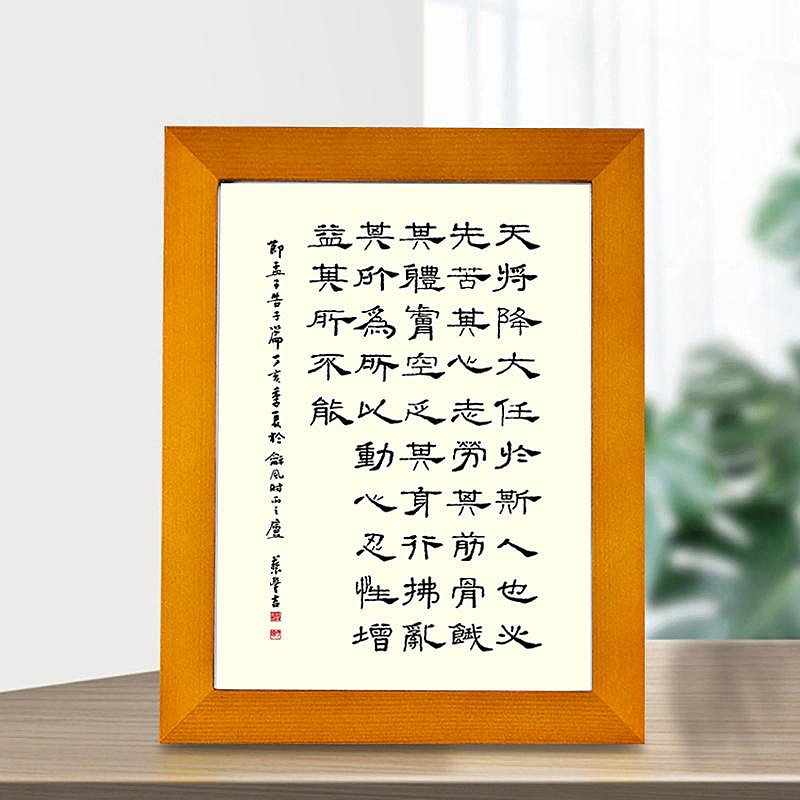 天將降大任於斯人也必
先苦其心志勞其筋骨餓
其體膚空乏其身行拂亂
其所爲所以動心忍性增
益其所不能
節孟子告子篇丁亥季夏於龢風时雨之廬